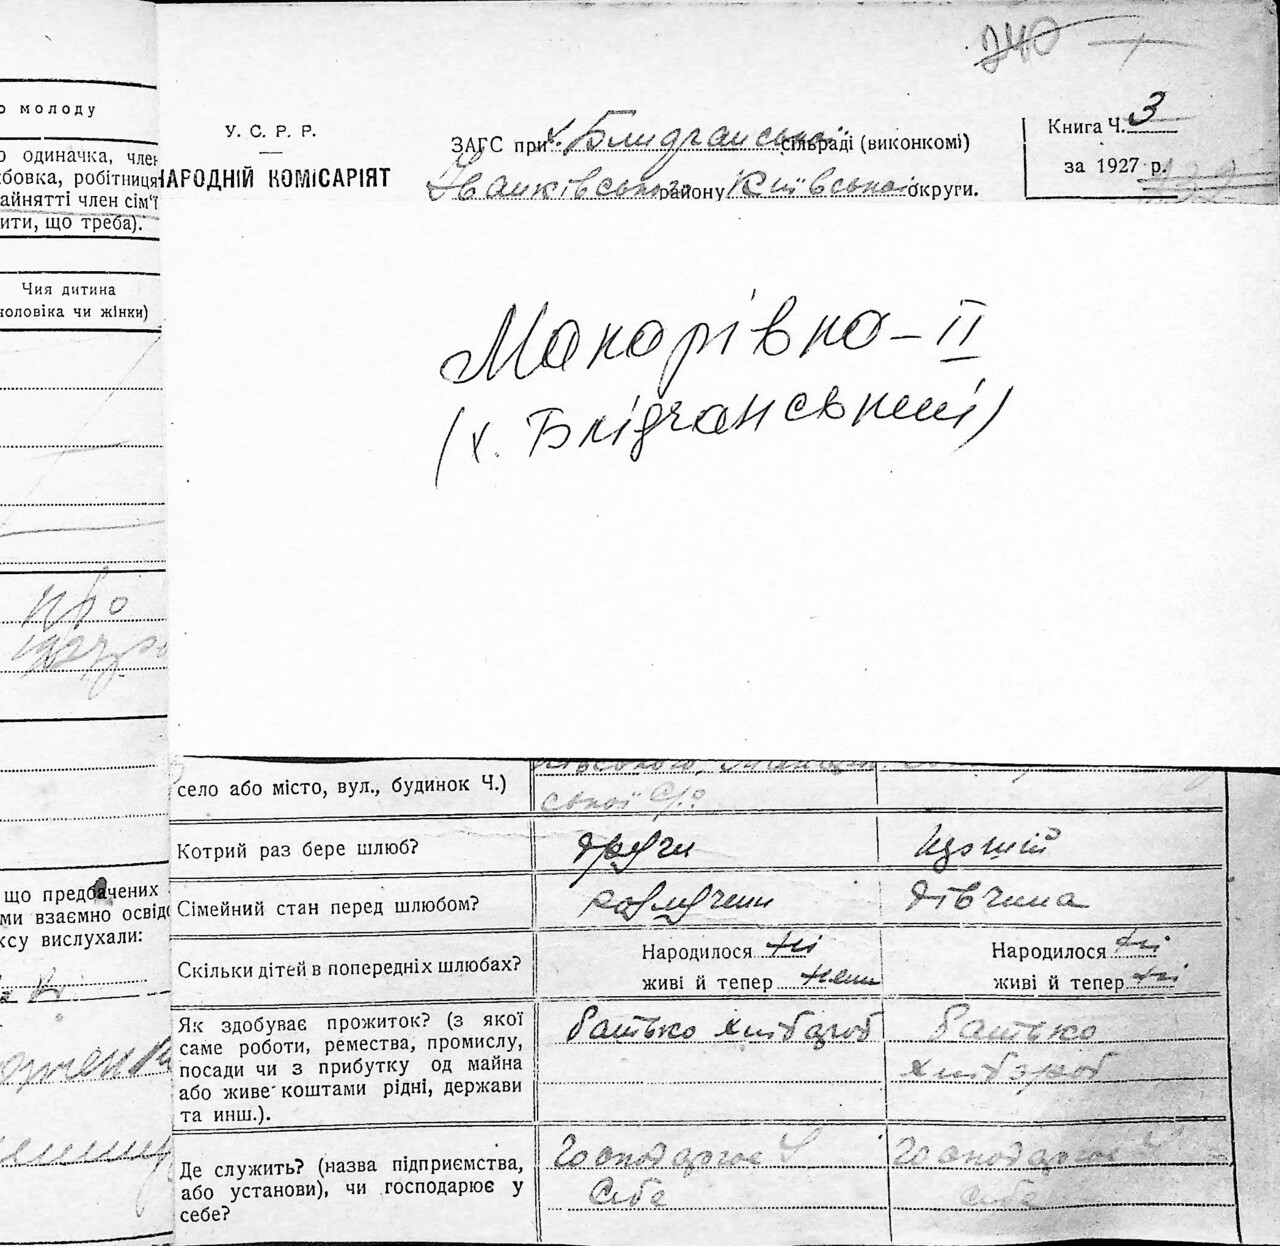 240
о молоду
о одиначка, член
бовка, робітниця
айнятті член сім'ї
ити, що треба).
Чия дитина
чоловіка чи жінки)
про
1927 р.
що предбачених
ми взаємно освідо
ксу вислухали:
У. С. Р. Р.
НАРОДНІЙ КОМІСАРІЯТ
ЗАГС при х. Блидчанської сільраді (виконкомі)
Іванківського району Київської округи.
Книга Ч. 3
за 1927 р.
Макарівка - II
(х. Блідчанський)
село або місто, вул., будинок Ч.)
ської с/р
Котрий раз бере шлюб? други перший
Сімейний стан перед шлюбом? розлучени дівчина
Скільки дітей в попередніх шлюбах? Народилося ні Народилося ні
живі й тепер живі й тепер ні
Як здобуває прожиток? (з якої батько хлібороб батько
саме роботи, ремества, промислу, хлібороб
посади чи з прибутку од майна
або живе коштами рідні, держави
та инш.).
Де служить? (назва підприємства, Господарює у Господарює у
або установи), чи господарює у себе себе
себе?